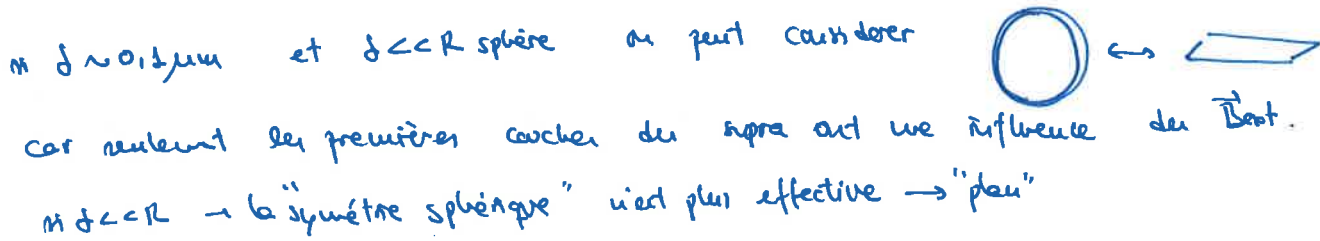 si δ ~ 0,1 μm et δ << R sphère on peut considerer ↔
car seulement les premières couches du supra ont une influence du B⃗ext.
si δ << R → la "symétrie sphérique" n'est plus effective → "plan"